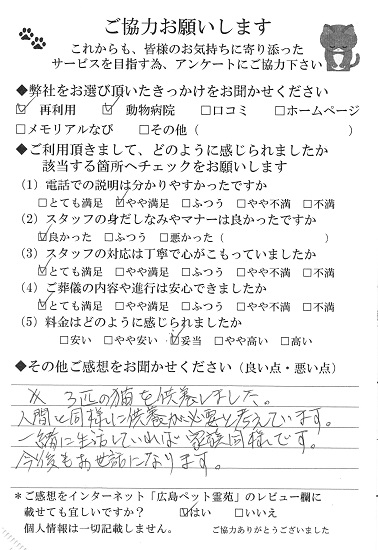 ご協力お願いします
これからも、皆様のお気持ちに寄り添った
サービスを目指す為、アンケートにご協力下さい
◆弊社をお選び頂いたきっかけをお聞かせください
☑ 再利用 ☑ 動物病院 □口コミ □ホームページ
□メモリアルなび □その他( )
◆ご利用頂きまして、どのように感じられましたか
該当する箇所へチェックをお願いします
(1)電話での説明は分かりやすかったですか
□とても満足 ☑やや満足 □ふつう □やや不満 □不満
(2)スタッフの身だしなみやマナーは良かったですか
☑良かった □ふつう □悪かった( )
(3)スタッフの対応は丁寧で心がこもっていましたか
☑とても満足 □やや満足 □ふつう □やや不満 □不満
(4)ご葬儀の内容や進行は安心できましたか
☑とても満足 □やや満足 □ふつう □やや不満 □不満
(5)料金はどのように感じられましたか
□安い □やや安い ☑妥当 □やや高い □高い
◆その他ご感想をお聞かせください(良い点・悪い点)
3匹の猫を供養しました。
人間と同様に供養が必要と考えています。
一緒に生活していれば家族同様です。
今後もお世話になります。
*ご感想をインターネット「広島ペット霊苑」のレビュー欄に
載せても宜しいですか? ☑はい □いいえ
個人情報は一切記載しません。 ご協力ありがとうございました